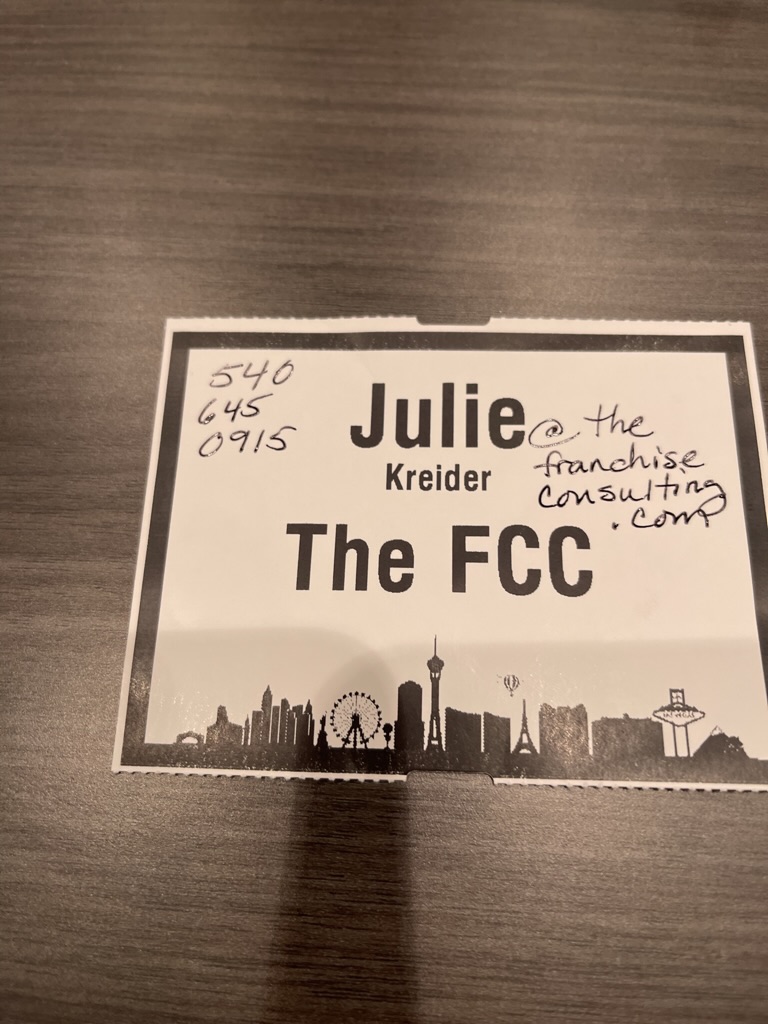 540
645
0915
Julie @ the
franchise
consulting
.com
Kreider
The FCC